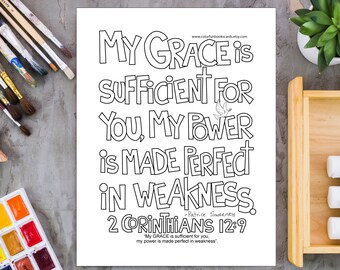 www.colorfaithnotecards.etsy.com
MY GRACE is
sufficient for
you, MY POWER
is MADE PERFECT
in WEAKNESS.
-Patrice Sweeney
2 CORiNTHiANS 12:9
"My GRACE is sufficient for you,
my power is made perfect in weakness"